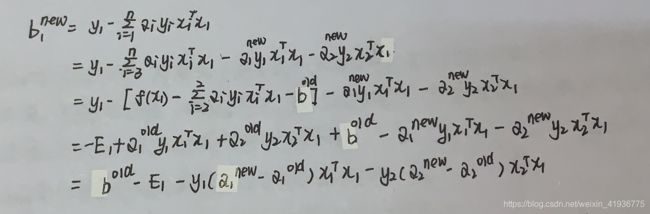 b₁ⁿᵉʷ = y₁ - Σᵢ₌₁ⁿ aᵢyᵢxᵢᵀx₁
= y₁ - Σᵢ₌₃ⁿ aᵢyᵢxᵢᵀx₁ - a₁ⁿᵉʷy₁x₁ᵀx₁ - a₂ⁿᵉʷy₂x₂ᵀx₁
= y₁ - [f(x₁) - Σᵢ₌₂² aᵢyᵢxᵢᵀx₁ - bᵒˡᵈ] - a₁ⁿᵉʷy₁x₁ᵀx₁ - a₂ⁿᵉʷy₂x₂ᵀx₁
= -E₁ + a₁ᵒˡᵈy₁x₁ᵀx₁ + a₂ᵒˡᵈy₂x₂ᵀx₁ + bᵒˡᵈ - a₁ⁿᵉʷy₁x₁ᵀx₁ - a₂ⁿᵉʷy₂x₂ᵀx₁
= bᵒˡᵈ - E₁ - y₁(a₁ⁿᵉʷ - a₁ᵒˡᵈ)x₁ᵀx₁ - y₂(a₂ⁿᵉʷ - a₂ᵒˡᵈ)x₂ᵀx₁
https://blog.csdn.net/weixin_41936775